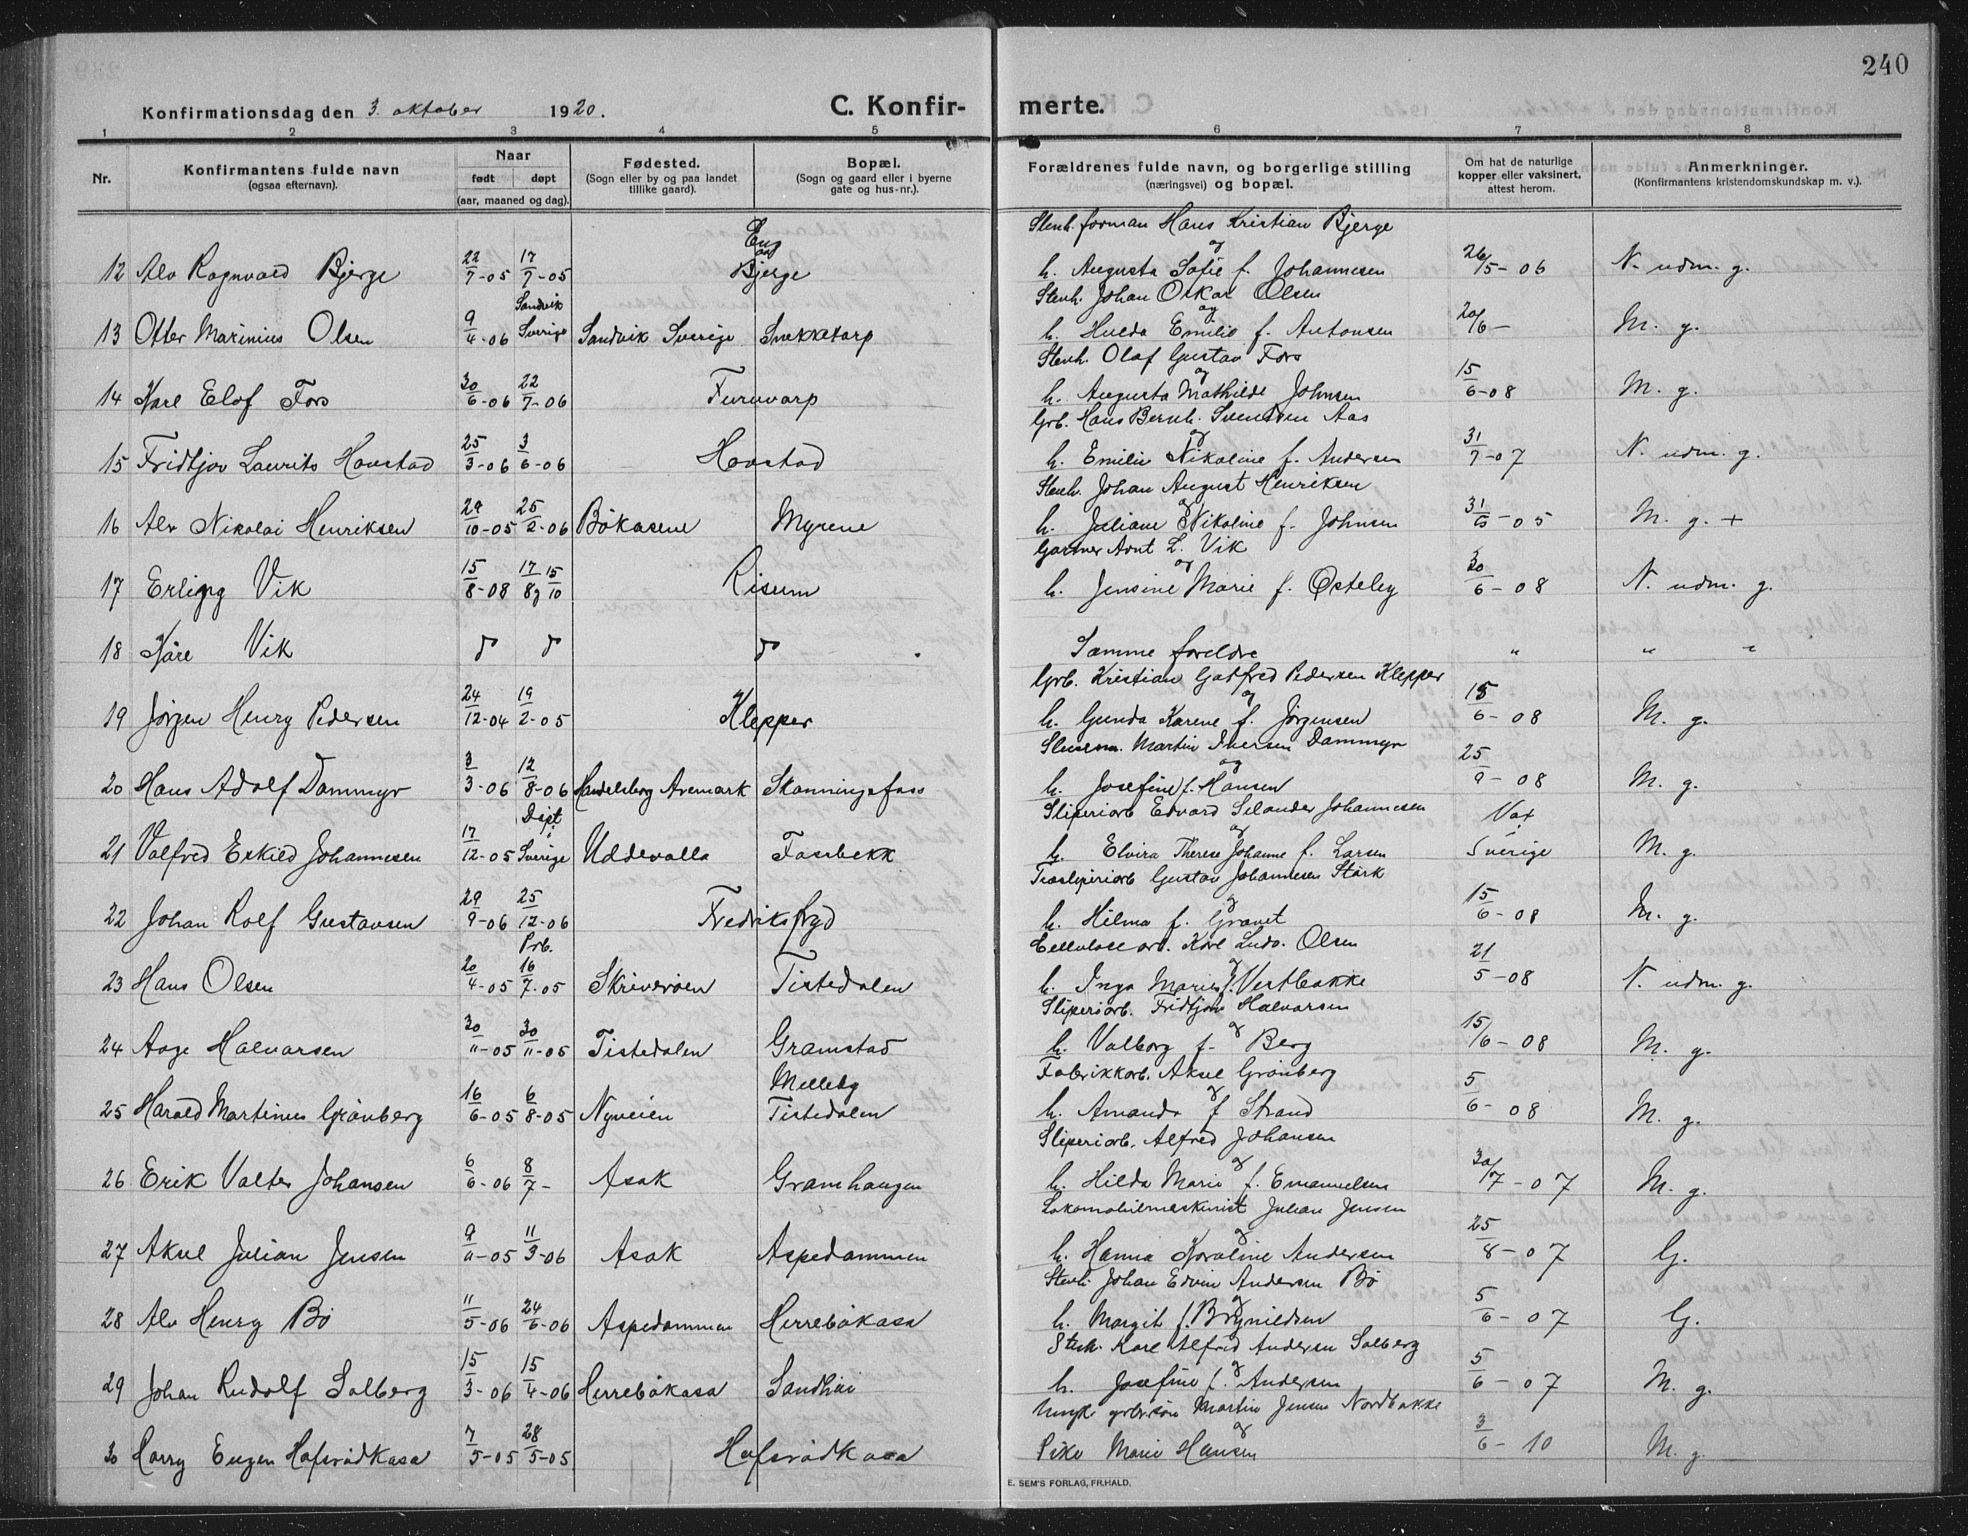 240
Konfirmationsdag den 3. oktober 1920. C. Konfir- merte.
1 2 3 4 5 6 7 8
Nr. Konfirmantens fulde navn (ogsaa efternavn). Naar født døpt (aar, maaned og dag). Fødested. (Sogn eller by og paa landet tillike gaard). Bopæl. (Sogn og gaard eller i byerne gate og hus-nr.). Forældrenes fulde navn, og borgerlige stilling (næringsvei) og bopæl. Om hat de naturlige kopper eller vaksinert, attest herom. Anmerkninger. (Konfirmantens kristendomskundskap m. v.).
Stenh. forman Hans Kristian Bjerge
12 Alv Ragnvald Bjerge 22/7-05 17/9-05 Eng Bjerge og h. Augusta Sofie f. Johannesen 26/5-06 N. udm. g.
Stenh. Johan Oskar Olsen
13 Otter Marinius Olsen 9/4-06 Sandvik Sverige Sandvik Sverige Snekketorp og h. Hulda Emilie f. Antonsen 20/6- M. g.
Stenh. Olaf Gustav Fors
14 Karl Elof Fors 30/6-06 22/7-06 Furuvarp og h. Augusta Mathilde Johnsen 15/6-08 M. g.
Grb. Hans Bernh. Svendsen Aas
15 Fridtjov Laurits Hovstad 25/3-06 3/6-06 Hovstad og h. Emilie Nikoline f. Andersen 31/7-07 N. udm. g.
Stenh. Johan August Henriksen
16 Alv Nikolai Henriksen 29/10-05 25/2-06 Bökasene Myrene og h. Juliane Nikoline f. Johnsen 31/5-05 M. g. +
Gartner Arnt L. Vik
17 Erling Vik 15/8-08 17/8 og 15/10 Risum og h. Jensine Marie f. Østeby 30/6-08 N. udm. g.
18 Kåre Vik d d d Samme foreldre " " "
Grb. Kristian Gotfred Pedersen Klepper
19 Jörgen Henry Pedersen 24/12-04 19/2-05 Klepper og h. Gunda Karene f. Jörgensen 15/6-08 M. g.
Slusem. Martin Iversen Dammyr
20 Hans Adolf Dammyr 3/3-06 12/8-06 Handelsborg Aremark Skanningsfoss og h. Josefine f. Hansen 25/9-08 M. g.
Sliperiarb Edvard Selander Johannesen
21 Valfred Eskild Johannesen 17/12-05 Döpt i Sverige Uddevalla Fossbekk og h. Elvira Therese Johanne f. Larsen Vax Sverige M. g.
Træsliperiarb Gustav Johannesen Stark
22 Johan Rolf Gustavsen 29/9-06 25/12-06 Fredriksfryd og h. Hilma f. Gravet 15/6-08 M. g.
Cellulosearb. Karl Ludv. Olsen
23 Hans Olsen 20/4-05 Prb. 16/7-05 Skriveröen Tistedalen og h. Inga Marie f. Vestbakke 21/5-08 N. udm. g.
Sliperiarb. Fridtjov Halvorsen
24 Aage Halvorsen 30/11-05 30/11-05 Tistedalen Gramstad og h. Valborg f. Berg 15/6-08 M. g.
Fabrikkarb. Aksel Grönberg
25 Harald Martinus Grönberg 16/6-05 6/8-05 Nyveien Milleby Tistedalen og h. Amanda f. Strand 5/6-08 M. g.
Sliperiarb. Alfred Johansen
26 Erik Valter Johansen 6/6-06 8/7- Asak Gramhaugen og h. Hilda Marie f. Emanuelsen 30/7-07 M. g.
Lokomobilmaskinist Julian Jensen
27 Aksel Julian Jensen 9/11-05 11/3-06 Asak Aspedammen og h. Hanna Karoline Andersen 25/8-07 G.
Stenh. Johan Edvin Andersen Bö
28 Alv Henry Bö 11/5-06 24/6-06 Aspedammen Herrebökasa og h. Margit f. Brynildsen 5/6-07 G.
Stenh. Karl Alfred Andersen Solberg
29 Johan Rudolf Solberg 15/3-06 15/4-06 Herrebökasa Sandhöi og h. Josefine f. Andersen 5/6-07 M. g.
Ungk. grbr.sön Martin Jensen Nordbakke
30 Harry Eugen Hafsrödkasa 7/5-05 28/5-05 Hafsrödkasa og Pike Marie Hansen 3/6-10 M. g.
E. SEM'S FORLAG, FR.HALD.